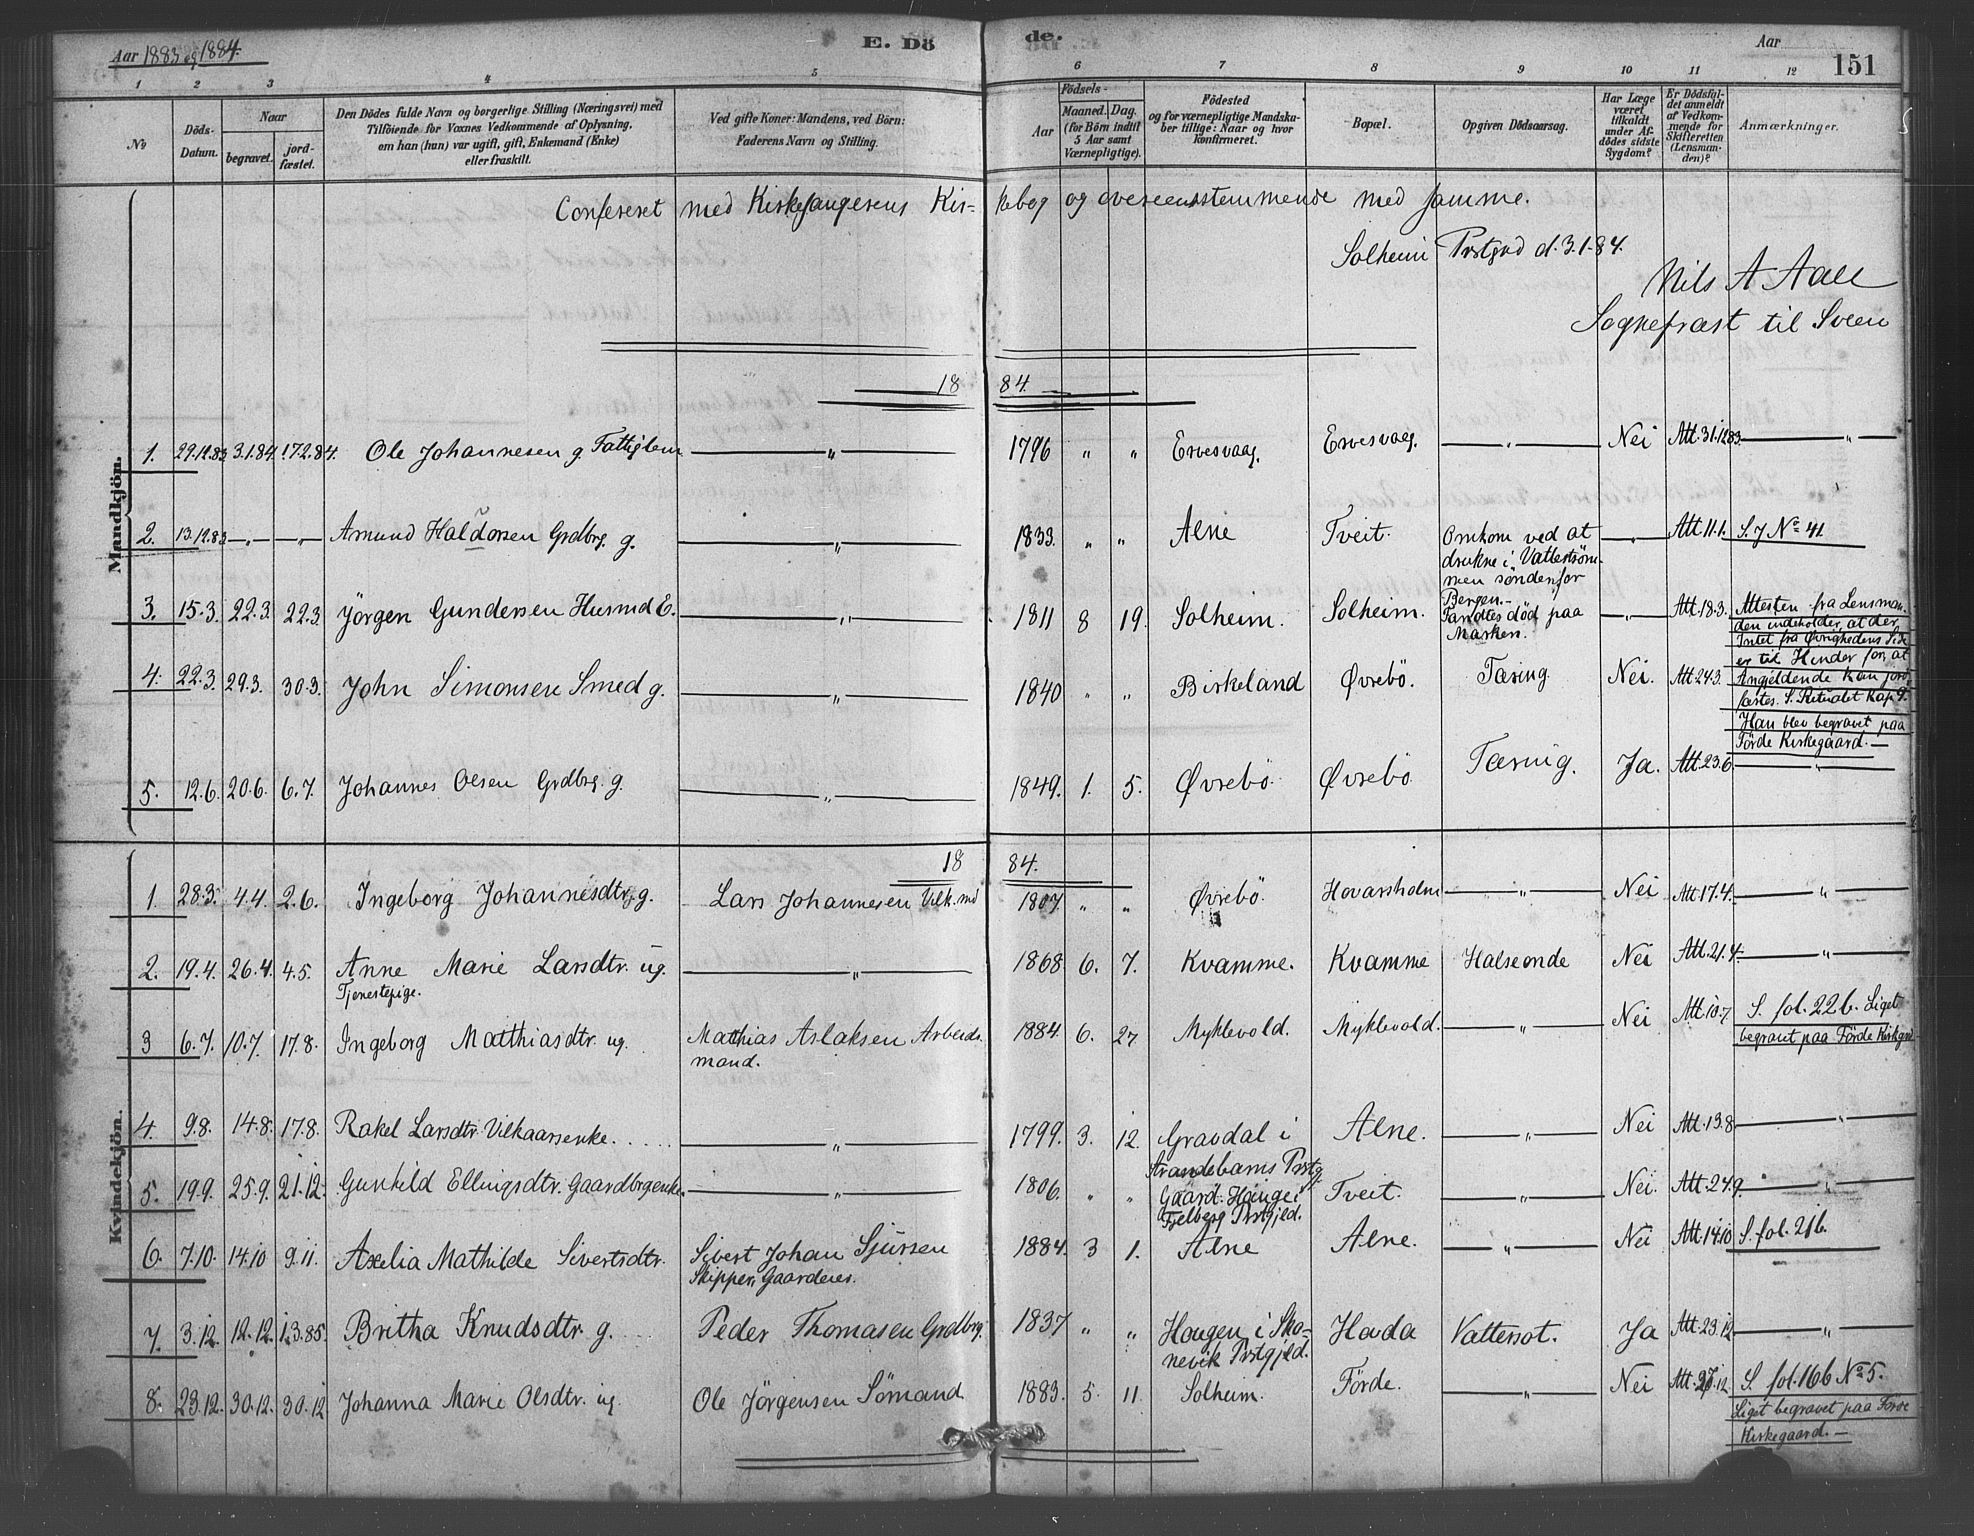 Aar 1883 og 1884. E. Dö de. Aar 151
1 2 3 4 5 6 7 8 9 10 11 12
No
Döds-Datum.
Naar
begravet.
jord-fæstet.
Den Dödes fulde Navn og borgerlige Stilling (Næringsvei) med
Tilföiende for Voxnes Vedkommende af Oplysning,
om han (hun) var ugift, gift, Enkemand (Enke)
eller fraskilt.
Ved gifte Koner: Mandens, ved Börn:
Faderens Navn og Stilling.
Födsels-
Aar
Maaned. Dag.
(for Börn indtil
5 Aar samt
Værnepligtige).
Födested
og for værnepligtige Mandska-
ber tillige: Naar og hvor
konfirmeret.
Bopæl.
Opgiven Dödsaarsag.
Har Læge
været
tilkaldt
under Af-
dödes sidste
Sygdom?
Er Dödsfal-
det anmeldt
af Vedkom-
mende for
Skifteretten
(Lensman-
den)?
Anmærkninger.
Confereret med Kirkesangerens Kir- kebog og overeensstemmende med samme.
Solheim Prstgrd d. 3.1.84.
Nils A Aall
Sognepræst til Sveen
18 84.
Mandkjön.
1. 29.12.83 3.1.84 17.2.84. Ole Johannesen g. Fattiglem — " — 1796 " " Ervesvaag. Ervesvaag. — " — Nei Att. 31.12.83 — " —
2. 13.12.83 — " — — " — Amund Haldorsen Grdbrg. g. — " — 1833. " " Alne Tveit. Omkom ved at
drukne i Vattestrøm-
men søndenfor
Bergen.
— " — Att 11.1. S. J No 41
3. 15.3. 22.3. 22.3. Jörgen Gundersen Husmd E. — " — 1811 8 19. Solheim. Solheim. Fandtes død paa
Marken.
— " — Att 18.3. Attesten fra Lensman-
den indeholder, at der
Intet fra Øvrighedens Side
er til Hinder for, at
Angjeldende kan jord-
fæstes. S. Ritualet Kap 9.
4. 22.3. 29.3. 30.3. John Simonsen Smed g. — " — 1840 " " Birkeland Øvrebö. Tæring Nei. Att 24.3. Han blev begravet paa
Förde Kirkegaard. —
5. 12.6. 20.6. 6.7. Johannes Olsen Grdbrg. g. — " — 1849. 1. 5. Øvrebö Øvrebö Tæring. Ja. Att 23.6. — " —
18 84.
Kvindekjön.
1. 28.3. 4.4. 2.6. Ingeborg Johannesdtr. g. Lars Johannesen Vilk.md 1807. " " Øvrebö. Hovarsholm — " — Nei Att. 17.4. — " —
2. 19.4. 26.4. 4.5. Anne Marie Larsdtr. ug.
Tjenestepige.
— " — 1868. 6. 7. Kvamme. Kvamme Halsonde Nei Att. 21.4. — " —
3 6.7. 10.7. 17.8. Ingeborg Matthiasdtr. ug. Matthias Aslaksen Arbeids-
mand.
1884. 6. 27 Myklevold. Myklevold. — " — Nei Att 10.7 S. fol. 22 b. Liget
begravet paa Förde Kirkgrd
4. 9.8. 14.8. 17.8. Rakel Larsdtr. Vilkaarsenke. — " — 1799. 3. 12. Gravdal i
Strandebarms Prstg.
Alne. — " — Nei Att. 13.8 — " —
5. 19.9. 25.9. 21.12. Gunhild Ellingsdtr. Gaardbrgenke. — " — 1806. " " Gaard: Hauge i
Fjelberg Prstgjeld.
Tveit. — " — Nei. Att. 24.9. — " —
6. 7.10. 14.10 9.11. Axelia Mathilde Sivertsdtr. Sivert Johan Sjursen
Skipper, Gaardeier.
1884. 3 1. Alne Alne. — " — Nei Att. 14.10 S. fol. 21 b.
7. 3.12. 12.12. 1.3.85. Britha Knudsdtr. g. Peder Thomasen Grdbrg. 1837 " " Haugen i Skо-
nevik Prstgjld.
Hovda Vattersot. Ja Att. 23.12 — " —
8. 23.12. 30.12. 30.12 Johanna Marie Olsdtr. ug. Ole Jörgensen Sömand 1883. 5. 11. Solheim. Förde. — " — Nei Att. 27.12. S. fol. 16 b No 5.
Liget begravet paa Förde
Kirkegaard. —